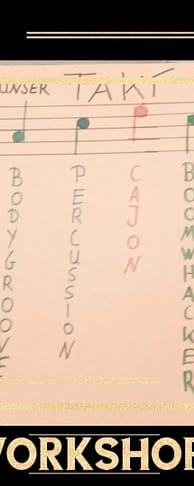 UNSER TAKT
BODYGROOVE
PERCUSSION
CAJON
BOOMWHACKER
WORKSHOP